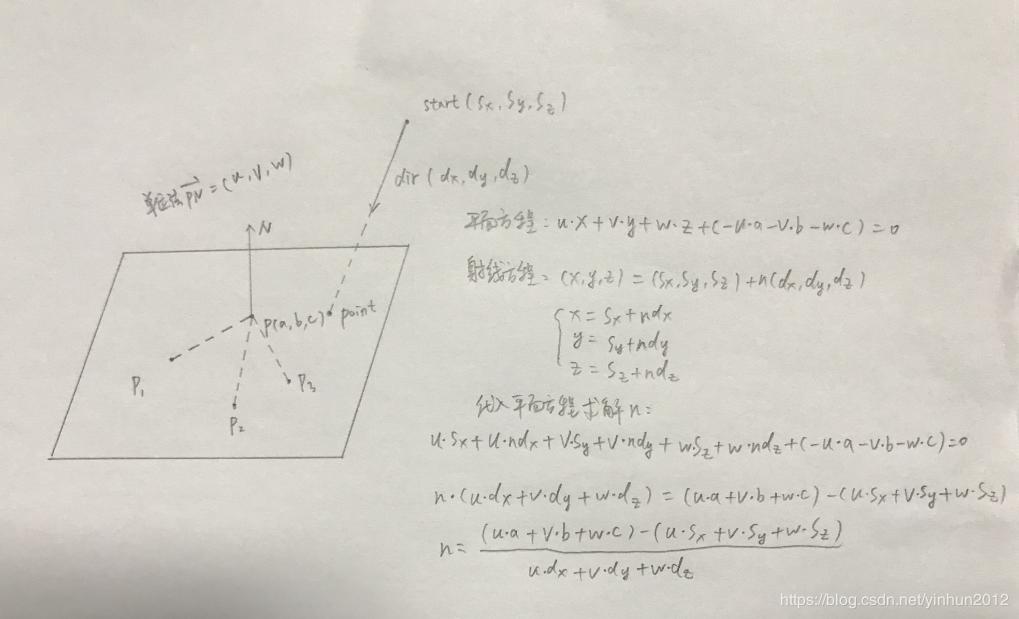 start(Sx, Sy, Sz)
dir(dx, dy, dz)
单位法PN=(u,v,w)
N
P(a,b,c)
point
P1
P2
P3
平面方程: u·x+v·y+w·z+(-u·a-v·b-w·c)=0
射线方程: (x,y,z)=(Sx,Sy,Sz)+n(dx,dy,dz)
x=Sx+ndx
y=Sy+ndy
z=Sz+ndz
代入平面方程求解n:
u·Sx+u·ndx+v·Sy+v·ndy+w·Sz+w·ndz+(-u·a-v·b-w·c)=0
n·(u·dx+v·dy+w·dz)=(u·a+v·b+w·c)-(u·Sx+v·Sy+w·Sz)
n=
(u·a+v·b+w·c)-(u·Sx+v·Sy+w·Sz)
u·dx+v·dy+w·dz
https://blog.csdn.net/yinhun2012